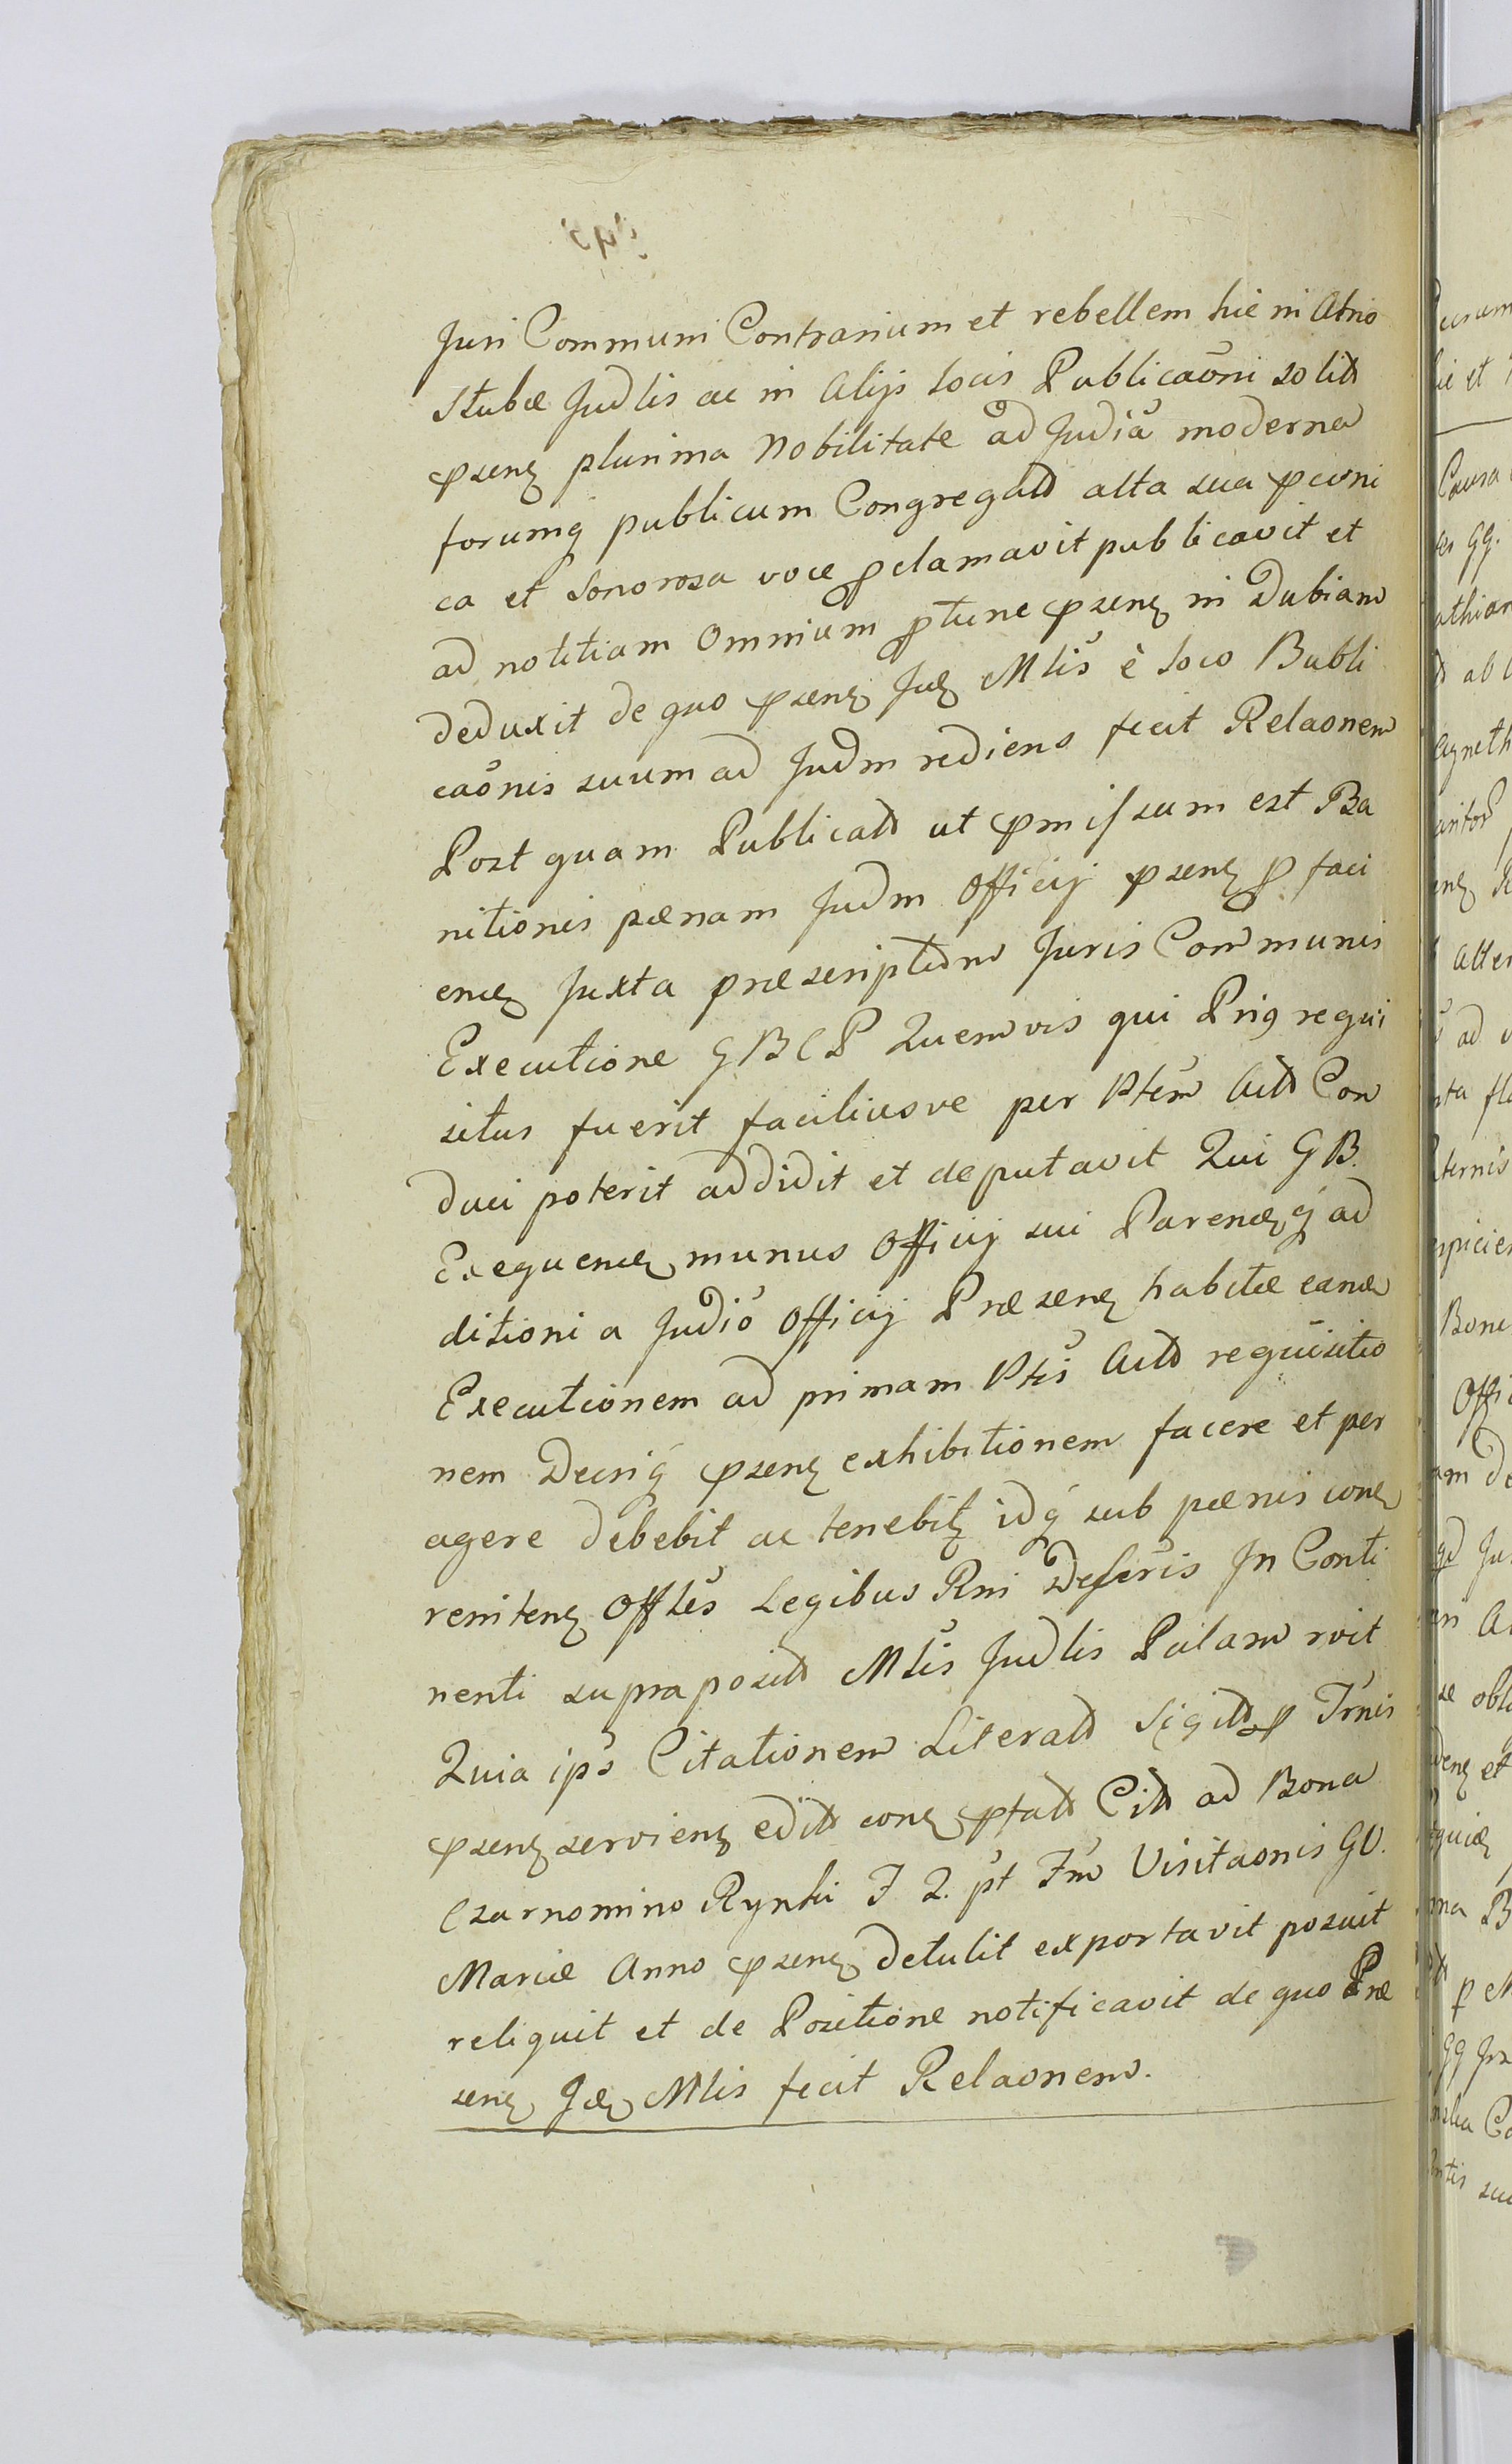 Juri Communi Contrarium et rebellem hic in Atrio
Stubæ Judlis ac in Alijs locis Publicaõni solitt
psenz plurima Nobilitate ad Judia moderna
forumq publicum Congregatt alta sua pconi
ca et Sonorosa voce pclamavit publicavit et
ad notitiam Omnium ptunc psenz in Dubiam
deduxit de quo psenz Juz Mlis è loco Bubli
caõnis suum ad Judm rediens fecit Relaonem
Post quam Publicatt ut pmissum est Ba
nitionis pænam Judm Officij psenz p faci
enda Juxta præscriptum Juris Communis
Executione GBCP Quemvis qui Prig requi
situs fuerit faciliusve per Ptem Actt Con
duci poterit addidit et deputavit Qui GB.
Exequendz munus Officij sui Parendæq ad
ditioni a Judio Officij Præsenz habitæ eand
Executionem ad primam Ptis Actt requisitio
nem Decriq psenz exhibitionem facere et per
agere debebit ac tenebitz idq sub pænis conz
renitenz Offles Legibus Rni Descris In Conti
nenti supraposzitt Mlis Judlis Palam rvit
Quia ips Citationem Literatt Sigitt p Trnis
psenz servienz editt conz pfatt Citt ad Bona
Czarnomino Rynki F 2. pt Fm Visitaonis GV.
Mariæ Anno psenz detulit exportavit posuit
reliquit et de Positione notificavit de quo Præ
senz Jdz Mlis fecit Relaonem.